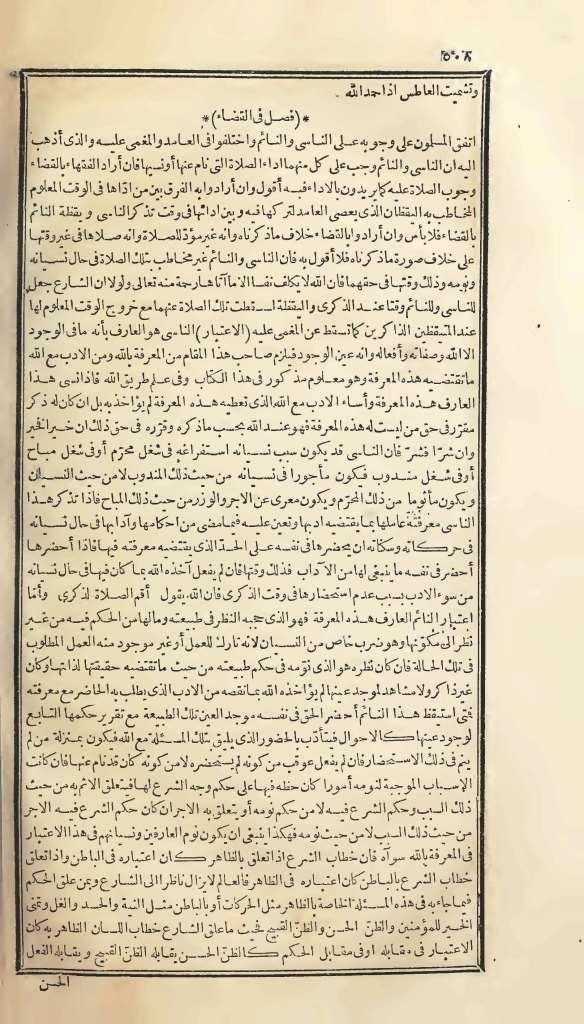 ٥٠٨
وتشميت العاطس اذا حمد الله .
*(فصل فى القضاء)*
اتفق المسلمون على وجوبه على الناسى والنائم واختلفوا فى العامد والمغمى عليه والذى أذهب
اليه ان الناسى والنائم وجب على كل منهما اداء الصلاة التى نام عنها أونسيها فان أراد الفقهاء بالقضاء
وجوب الصلاة عليه كما يريدون بالاداء فبه أقول وان أرادوا به الفرق بين من اداها فى الوقت المعلوم
المخاطب به اليقظان الذى يعصى العامد لتركها فيه وبين ادائها فى وقت تذكر الناسى ويقظة النائم
بالقضاء فلا بأس وان أرادوا بالقضاء خلاف ما ذكرناه وانه غير مؤدّ للصلاة وانه صلاها فى غير وقتها
على خلاف صورة ما ذكرناه فلا أقول به فان الناسى والنائم غير مخاطب بتلك الصلاة فى حال نسيانه
ونومه وذلك وقتها فى حقهما فان الله لا يكلف نفسا الا ما آتاها رحمة منه تعالى ولولا ان الشارع جعل
للناسى وللنائم وقتا عند الذكرى واليقظة لسقطت تلك الصلاة عنهما مع خروج الوقت المعلوم لها
عند المتيقظين الذاكرين كما تسقط عن المغمى عليه (الاعتبار) الناسى هو العارف بأنه ما فى الوجود
الا الله وصفاته وأفعاله وانه عين الوجود فيلزم صاحب هذا المقام من المعرفة بالله ومن الادب مع الله
ما تقتضيه هذه المعرفة وهو معلوم مذكور فى هذا الكتاب وفى علم طريق الله فاذا نسى هذا
العارف هذه المعرفة وأساء الادب مع الله الذى تعطيه هذه المعرفة لم يؤاخذ به بل ان كان له ذكر
مقرّر فى حق من ليست له هذه المعرفة فهو عند الله بحسب ما ذكره وقرّره فى حق ذلك ان خيرا فخير
وان شرّا فشرّ فان الناسى قد يكون سبب نسيانه استفراغه فى شغل محرّم أو فى شغل مباح
أو فى شغل مندوب فيكون مأجورا فى نسيانه من حيث ذلك المندوب لا من حيث النسيان
ويكون مأثوما من ذلك المحرّم ويكون معرى عن الاجر والوزر من حيث ذلك المباح فاذا تذكر هذا
الناسى معرفته عاملها بما يقتضيه ادبها وتعين عليه فيما مضى من احكامها وآدابها فى حال نسيانه
فى حركاته وسكناته ان يحضرها فى نفسه على الحدّ الذى يقتضيه معرفته فيها فاذا أحضرها
أحضر فى نفسه ما ينبغى لها من الآداب فذلك وقتها فان لم يفعل آخذه الله بما كان فيها فى حال نسيانه
من سوء الادب بسبب عدم استحضارها فى وقت الذكرى فان الله يقول أقم الصلاة لذكرى وأمّا
اعتبار النائم العارف هذه المعرفة فهو الذى حجبه النظر فى طبيعته وما لها من الحكم فيه من غير
نظر الى مكوّنها وهو ضرب خاص من النسيان لانه تارك للعمل أو غير موجود منه العمل المطلوب
فى تلك الحالة فان كان نظره هو الذى نوّمه فى حكم طبيعته من حيث ما تقتضيه حقيقتها لذاتها وكان
غير ذاكر ولا مشاهد لموجد عينها لم يؤاخذه الله بما نقصه من الادب الذى يطلب به الحاضر مع معرفته
فمتى استيقظ هذا النائم أحضر الحق فى نفسه موجد العين تلك الطبيعة مع تقرير حكمها التابع
لوجود عينها كالاحوال فيتأدّب بالحضور الذى يليق بتلك المسئلة مع الله فيكون بمنزلة من لم
ينم فى ذلك الاستحضار فان لم يفعل عوقب من كونه لم يستحضره لا من كونه كان قد نام عنها فان كانت
الاسباب الموجبة لنومه أمورا كان حظه فيها على حكم وجه الشرع لها فيتعلق الاثم به من حيث
ذلك السبب وحكم الشرع فيه لا من حكم نومه أو يتعلق به الاجر ان كان حكم الشرع فيه الاجر
من حيث ذلك السبب لا من حيث نومه فهكذا ينبغى ان يكون نوم العارفين ونسيانهم فى هذا الاعتبار
فى المعرفة بالله سواء فان خطاب الشرع اذا تعلق بالظاهر كان اعتباره فى الباطن واذا تعلق
خطاب الشرع بالباطن كان اعتباره فى الظاهر فالعالم لا يزال ناظرا الى الشارع وبمن علق الحكم
فيما جاء به فى هذه المسئلة الخاصة بالظاهر مثل الحركات أو بالباطن مثل النية والحسد والغل وتمنى
الخير للمؤمنين والظنّ الحسن والظن القبيح فحيث ما علق الشارع خطاب اللسان الظاهر به كان
الاعتبار فى مقابله او فى مقابل الحكم كالظنّ الحسن يقابله الظنّ القبيح ويقابله الفعل
الحسن